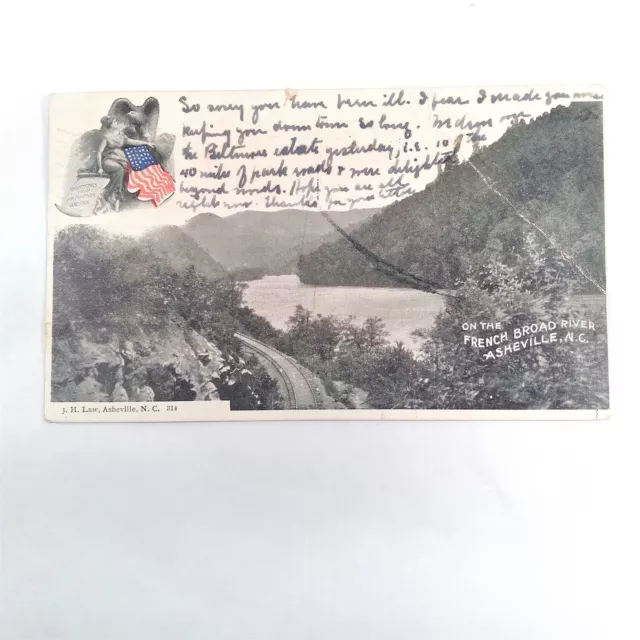 So sorry you have been ill. I fear I made you worse
keeping you down town so long. We drove over
the Biltmore estate yesterday, i.e. 10 of the
40 miles of park roads & were delighted
beyond words. Hope you are all
right now. Thanks for your letter
ON THE
FRENCH BROAD RIVER
ASHEVILLE, N.C.
J. H. Law, Asheville, N. C. 314